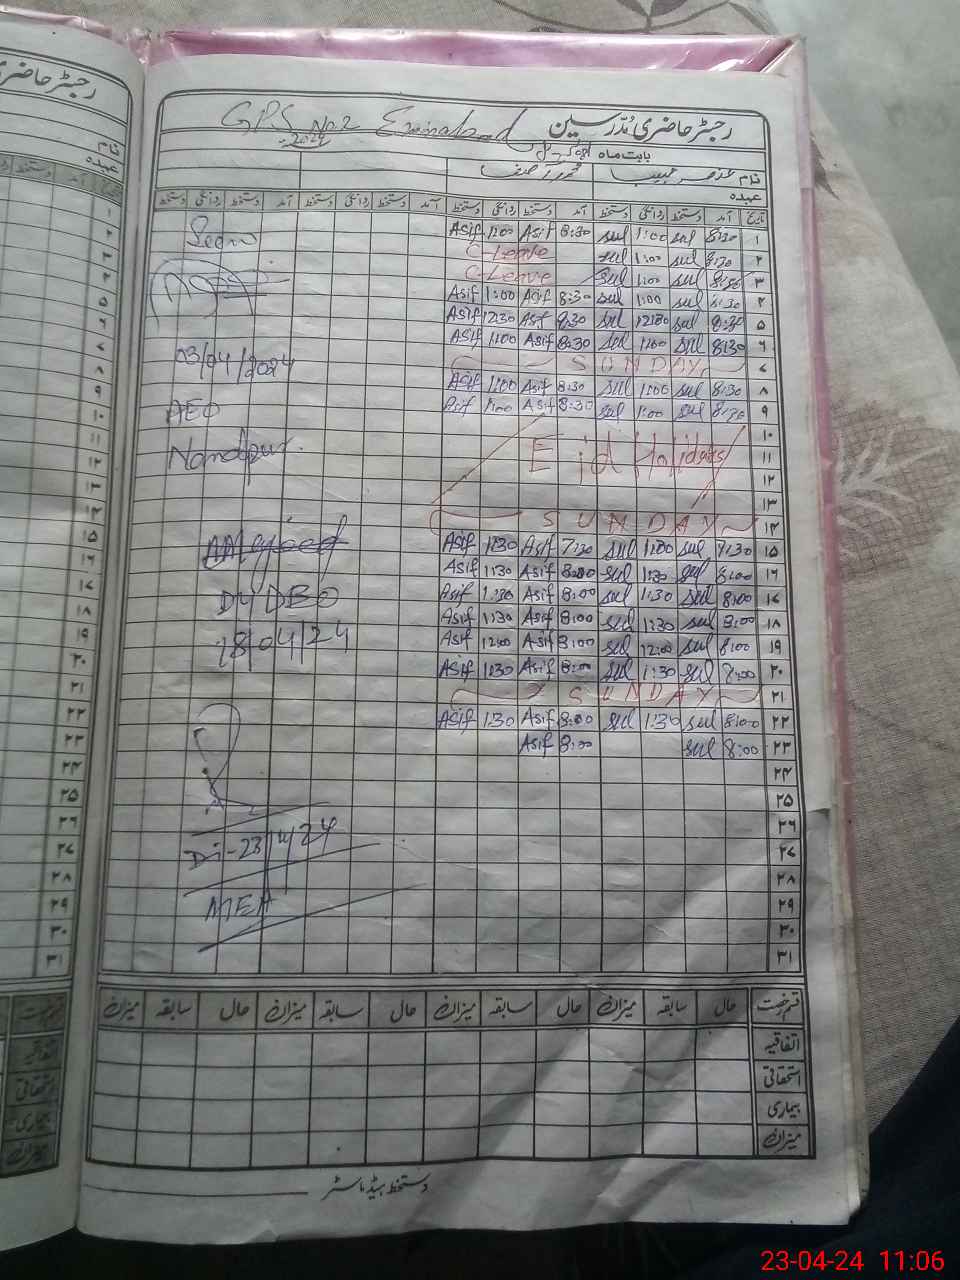 رجسٹر حاضری
نام
عہدہ
GPS No.2 Eminabad رجسٹر حاضری مُدرّسین
2024 بابت ماہ اپریل
نام
عہدہ
تاریخ آمد دستخط روانگی دستخط آمد دستخط روانگی دستخط آمد دستخط روانگی دستخط آمد دستخط روانگی دستخط
۱ 8:30 sul 1:00 sul 8:30 Asif 1:00 Asif
۲ 8:30 sul 1:00 sul C-Leave
۳ 8:30 sul 1:00 sul C-Leave
۴ 8:30 sul 1:00 sul 8:30 Asif 1:00 Asif
۵ 8:30 sul 12:30 sul 8:30 Asif 12:30 Asif
۶ 8:30 sul 1:00 sul 8:30 Asif 1:00 Asif
۷ SUNDAY
۸ 8:30 sul 1:00 sul 8:30 Asif 1:00 Asif
۹ 8:30 sul 1:00 sul 8:30 Asif 1:00 Asif
۱۰
۱۱ Eid Holidays
۱۲
۱۳
۱۴ SUNDAY
۱۵ 7:30 sul 1:00 sul 7:30 Asif 1:30 Asif
۱۶ 8:00 sul 1:30 sul 8:00 Asif 1:30 Asif
۱۷ 8:00 sul 1:30 sul 8:00 Asif 1:30 Asif
۱۸ 8:00 sul 1:30 sul 8:00 Asif 1:30 Asif
۱۹ 8:00 sul 12:00 sul 8:00 Asif 12:00 Asif
۲۰ 8:00 sul 1:30 sul 8:00 Asif 1:30 Asif
۲۱ SUNDAY
۲۲ 8:00 sul 1:30 sul 8:00 Asif 1:30 Asif
۲۳ 8:00 sul 8:00 Asif
۲۴
۲۵
۲۶
۲۷
۲۸
۲۹
۳۰
۳۱
Seen
03/04/2024
AEO
Nandpur.
DY DEO
18/04/24
Dt-23/4/24
MEA
قسم رخصت حال سابقہ میزان حال سابقہ میزان حال سابقہ میزان حال سابقہ میزان
اتفاقیہ
استحقاقی
بیماری
میزان
دستخط ہیڈ ماسٹر
23-04-24 11:06